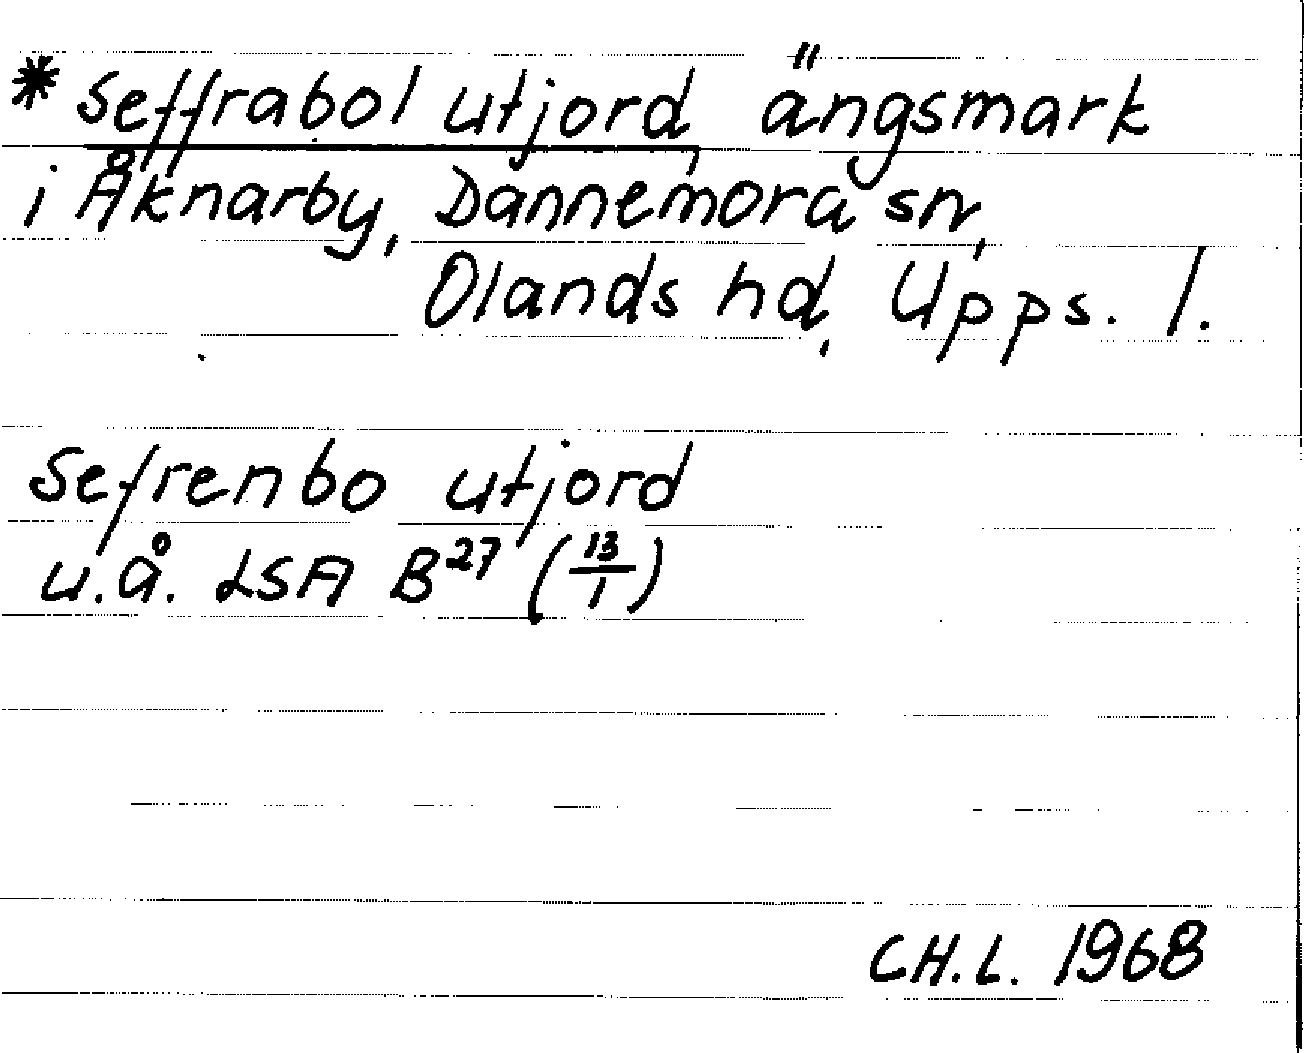 * Seffrabol utjord, ängsmark
i Åknarby, Dannemora sn,
Olands hd, Upps. l.
Sefrenbo utjord
u.å. LSA B27 (13/1)
CH.L. 1968